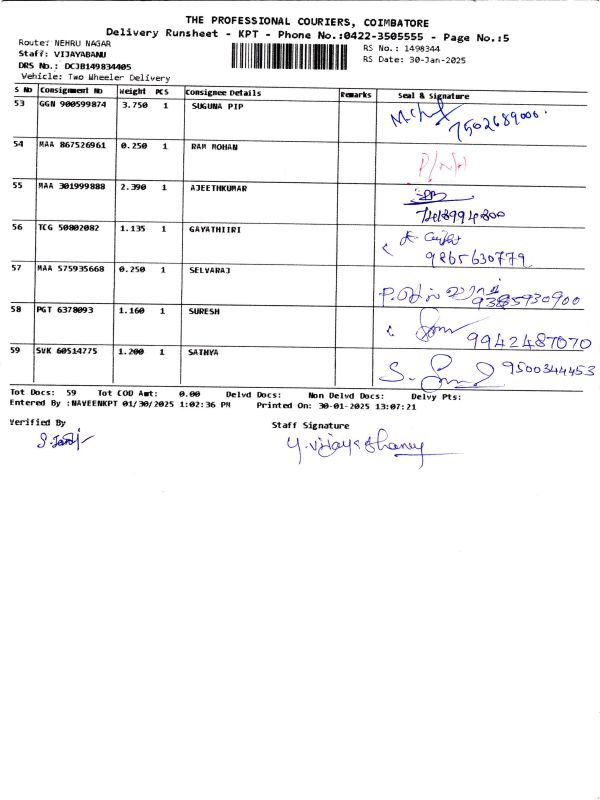 THE PROFESSIONAL COURIERS, COIMBATORE
Delivery Runsheet - KPT - Phone No.:0422-3505555 - Page No.:5
Route: NEHRU NAGAR
RS No.: 1498344
Staff: VIJAYABANU
RS Date: 30-Jan-2025
DRS No.: DCJB149834405
Vehicle: Two Wheeler Delivery
S No Consignment No Weight PCS Consignee Details Remarks Seal & Signature
53 GGN 900599874 3.750 1 SUGUNA PIP
7502689000.
54 MAA 867526961 0.250 1 RAM MOHAN
P/NH
55 MAA 301999888 2.390 1 AJEETHKUMAR
7418994800
56 TCG 50802082 1.135 1 GAYATHIIRI
9865630779
57 MAA 575935668 0.250 1 SELVARAJ
58 PGT 6378093 1.160 1 SURESH
9942487070
59 SVK 60514775 1.200 1 SATHYA
9500344453
Tot Docs: 59 Tot COD Amt: 0.00 Delvd Docs: Non Delvd Docs: Delvy Pts:
Entered By :NAVEENKPT 01/30/2025 1:02:36 PM Printed On: 30-01-2025 13:07:21
Verified By Staff Signature